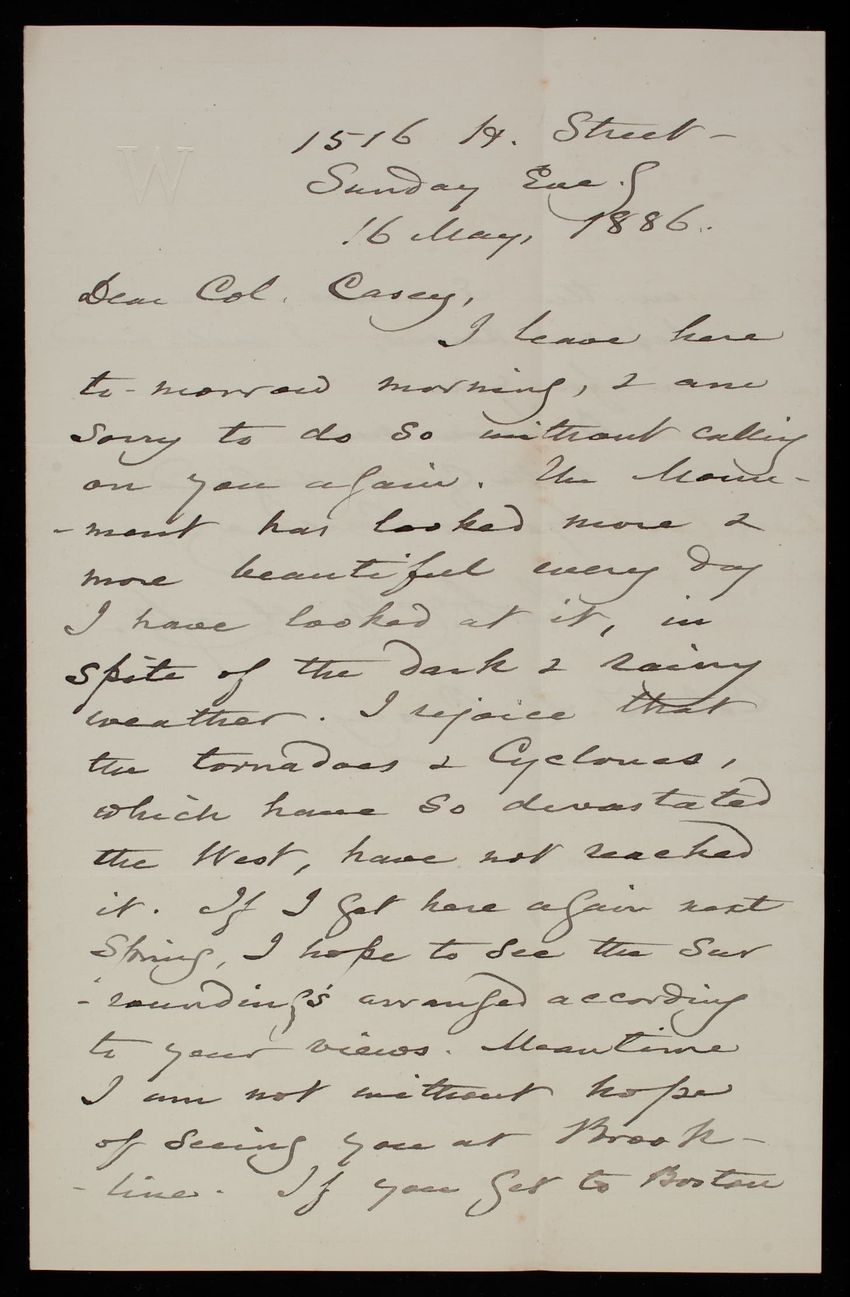 W
1516 H. Street -
Sunday Eve.g
16 May, 1886.
Dear Col. Casey,
I leave here
to-morrow morning, & am
sorry to do so without calling
on you again. The Monu-
-ment has looked more &
more beautiful every day
I have looked at it, in
spite of the dark & rainy
weather. I rejoice that
the tornadoes & Cyclones,
which have so devastated
the West, have not reached
it. If I get here again next
Spring, I hope to see the Sur
-roundings arranged according
to your views. Meantime
I am not without hope
of seeing you at Brook-
-line. If you get to Boston